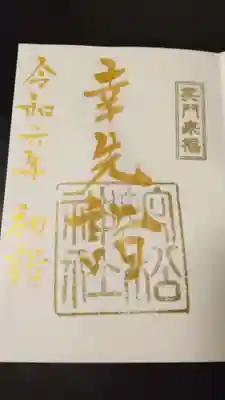 笑門来福
幸先詣
神社
令和六年 初詣